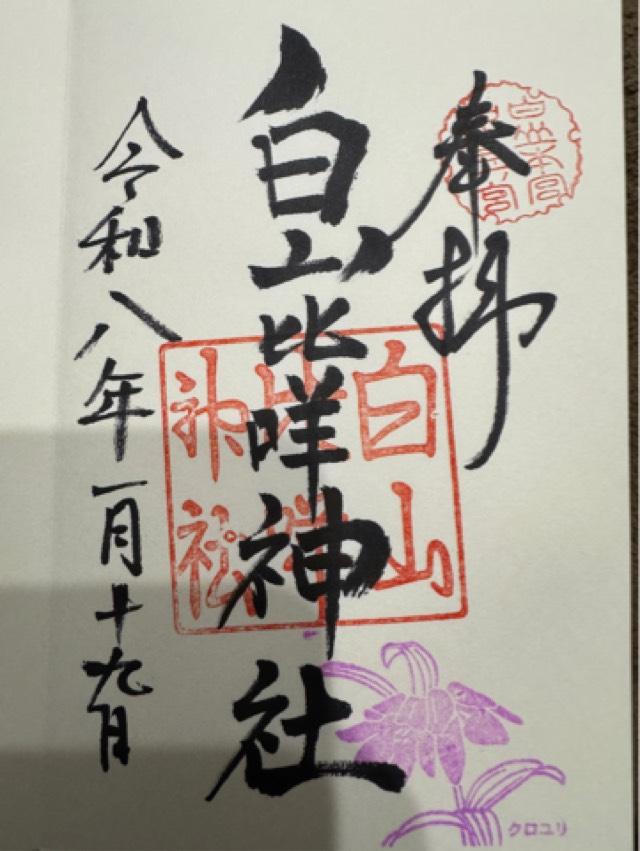 奉拝
白山比咩神社
令和八年一月十九日
白山
比咩
神社
クロユリ